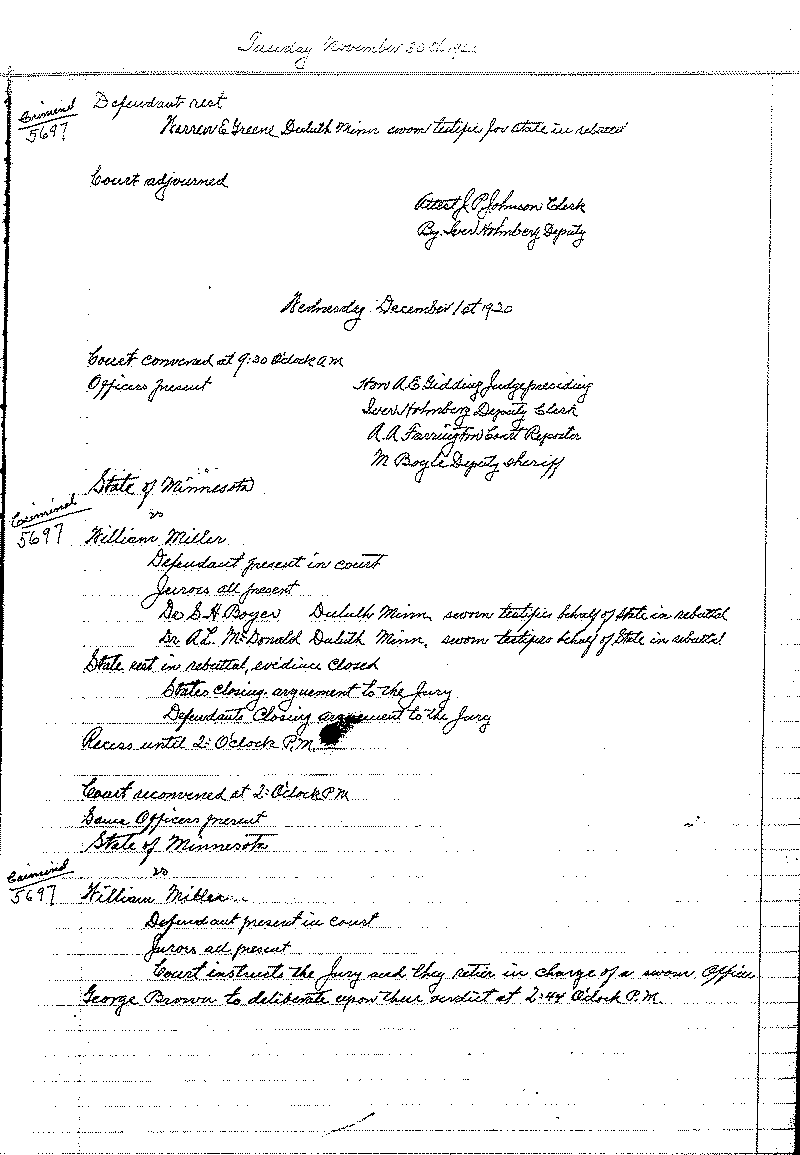 Tuesday November 30th 192
Defendant rest
Criminal
5697
Warren E Greene Duluth Minn sworn testifies for state in rebuttal
Court adjourned
Attest J. P. Johnson Clerk
By Iver Holmberg Deputy
Wednesday December 1st 1920
Court convened at 9:30 Oclock A M
Officers present
Hon A E Gidding Judge presiding
Iver Holmberg Deputy Clerk
A. A Farrington Court Reporter
M Boyle Deputy Sheriff
State of Minnesota
Criminal
vs
5697
William Miller
Defendant present in court
Jurors all present
Dr S. H Boyer Duluth Minn, sworn testifies behalf of State in rebuttal
Dr A. L. McDonald Duluth Minn, sworn testifies behalf of State in rebuttal
State rest in rebuttal, evidence closed
States closing arguement to the Jury
Defendants Closing arguement to the Jury
Recess until 2: O'clock P. M.
Court reconvened at 2: O'clock P M
Same Officers present
State of Minnesota
Criminal
vs
5697
William Miller
Defendant present in court
Jurors all present
Court instructs the Jury and they retier in charge of a sworn Officer
George Brown to deliberate upon their verdict at 2:44 O'clock P. M.